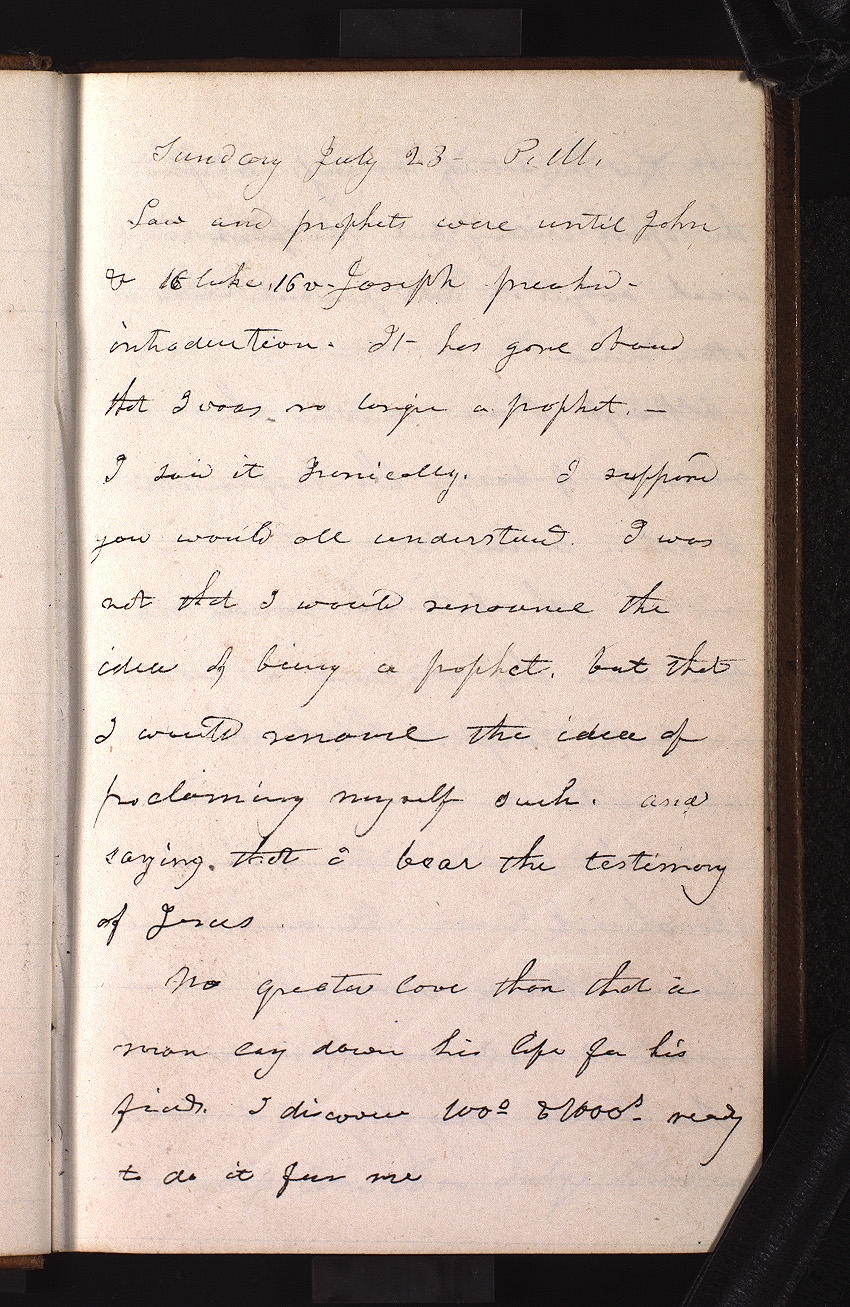 Sunday July 23- P.M.
Law and prophets were until John
& 16 luke, 16 v- Joseph preachd-
introduction. It has gone aboud
that I was no longer a prophet.-
I said it Ironically. I suppose
you would all understand. I was
not that I would renounce the
idea of being a prophet, but that
I would renounce the idea of
proclaiming myself such. and
saying. that I bear the testimony
of Jesus
No greater love than that a
man lay down his life for his
friends. I discover 100s & 1000s- ready
to do it for me